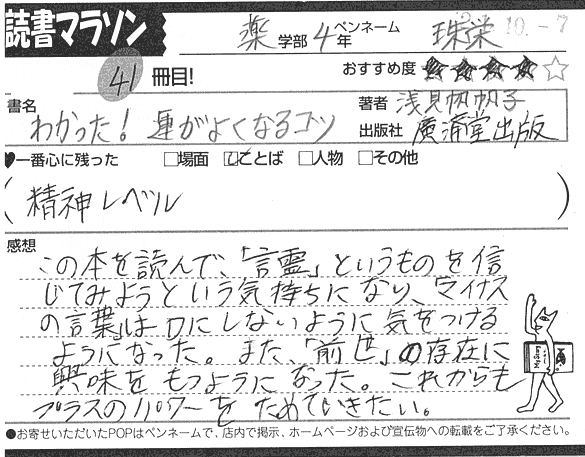 読書マラソン
薬学部4年 ペンネーム 珠栄 10.-7
41冊目! おすすめ度 ★★★★☆
書名 わかった! 運がよくなるコツ
著者 浅見帆帆子
出版社 廣済堂出版
♥一番心に残った □場面 ☑ことば □人物 □その他
(精神レベル)
感想
この本を読んで、「言霊」というものを信
じてみようという気持ちになり、「マイナス
の言葉」は口にしないように気をつける
ようになった。また、「前世」の存在に
興味をもつようになった。これからも
プラスのパワーをためていきたい。
My Story
●お寄せいただいたPOPはペンネームで、店内で掲示、ホームページおよび宣伝物への転載をご了承ください。